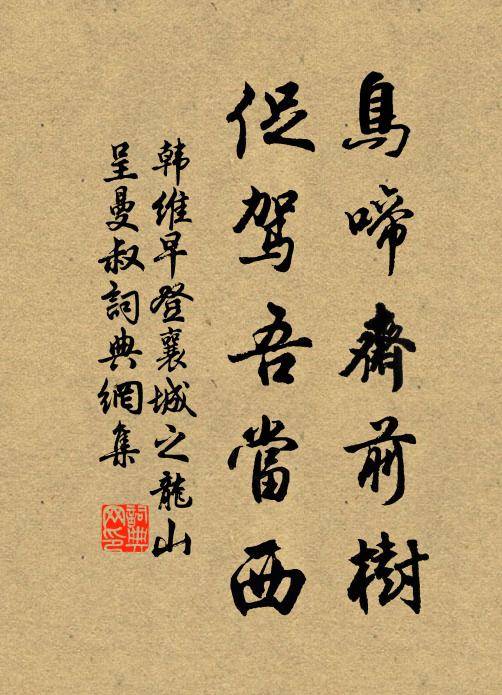 鳥啼齋前樹
促駕吾當西
韩維早登襄城之龍山
呈曼叔詞典網集
詞典网印